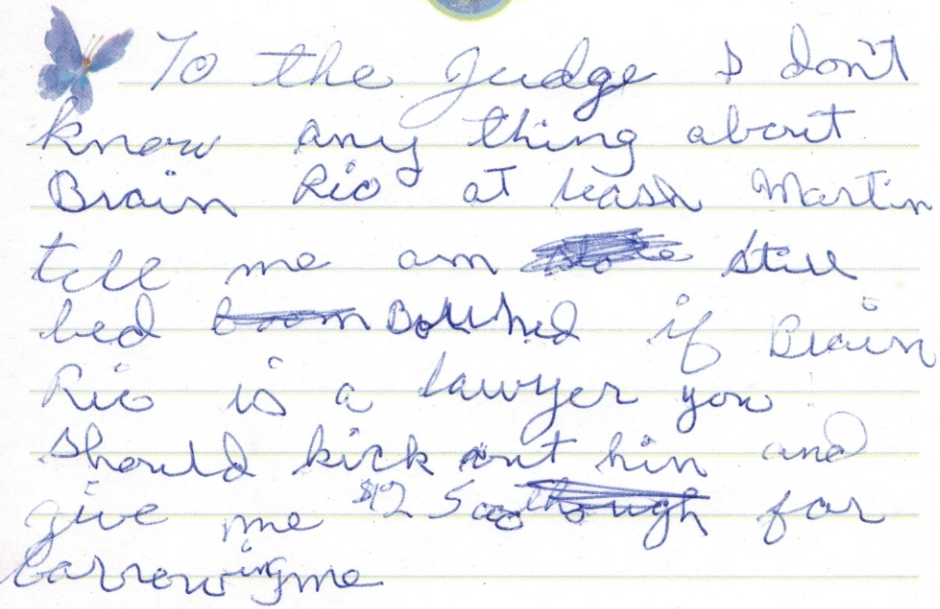 To the Judge I don't
know any thing about
Brain Rio at leash Martin
tell me am still
bed if Brain
Rio is a lawyer you
should kick out him and
give me $12500 for
barrowing me